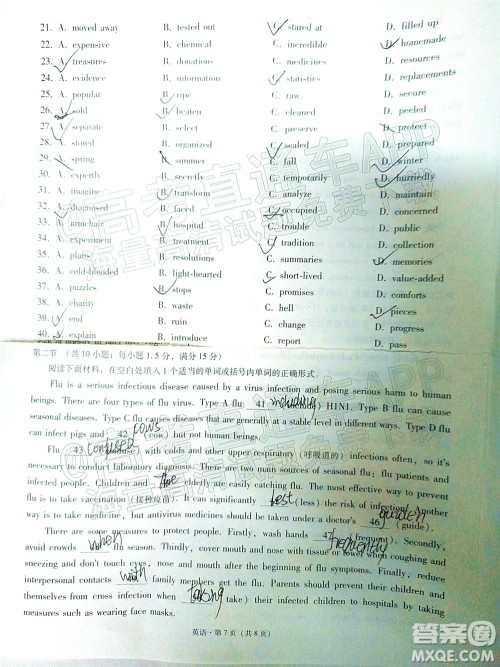 21. A. moved away B. tested out C. stared at D. filled up
22. A. expensive B. chemical C. incredible D. homemade
23. A. treasures B. donations C. medicines D. resources
24. A. evidence B. information C. statistics D. replacements
25. A. popular B. ripe C. raw D. secure
26. A. sold B. beaten C. cleaned D. peeled
27. A. separate B. select C. preserve D. protect
28. A. stored B. organized C. sealed D. prepared
29. A. spring B. summer C. fall D. winter
30. A. expertly B. secretly C. temporarily D. hurriedly
31. A. imagine B. transform C. analyze D. maintain
32. A. diagnosed B. faced C. occupied D. concerned
33. A. armchair B. hospital C. trouble D. public
34. A. experiment B. treatment C. tradition D. collection
35. A. plans B. results C. summaries D. memories
36. A. cold-blooded B. light-hearted C. short-lived D. value-added
37. A. puzzles B. stops C. proves D. pieces
38. A. charity B. waste C. hell D. discount
39. A. end B. ruin C. express D. impact
40. A. explain B. introduce C. report D. reject
第二节 (共10小题;每小题1.5分,满分15分)
阅读下面材料,在空白处填入1个适当的单词或括号内单词的正确形式。
Flu is a serious infectious disease caused by a virus infection and posing serious harm to human
beings. There are four types of flu viruses. Type A flu 41 including ) H1N1. Type B flu can cause
seasonal diseases. Type C flu causes diseases that are generally at a stable level in different ways. Type D flu
can infect pigs and 42 cows ) but not human beings.
Flu 43 confused ) with colds and other upper respiratory (呼吸道的) infections often, so it's
necessary to conduct laboratory diagnosis. There are two main sources of seasonal flu: flu patients and
infectious patients. Children and the elderly are easily catching flu. The most effective way to prevent
flu is taking a vaccination (接种疫苗). It can significantly best (less) the risk of infection. Another
way is to take medicine, but antivirus medicines should be taken under a doctor's 46 (guide).
There are some measures to protect people. Firstly, wash hands frequently . Secondly,
avoid crowds when flu season. Thirdly, cover mouth and nose with tissue or towel when coughing and
sneezing and don't touch eyes, nose and mouth after the beginning of flu symptoms. Fourthly, reduce
interpersonal contacts with family members get the flu. Parents should prevent children and
themselves from cross infection when taking take) their infected children to hospitals by taking
measures such as wearing face masks.
英语·第7页(共8页)
答案圈
MXQE.COM